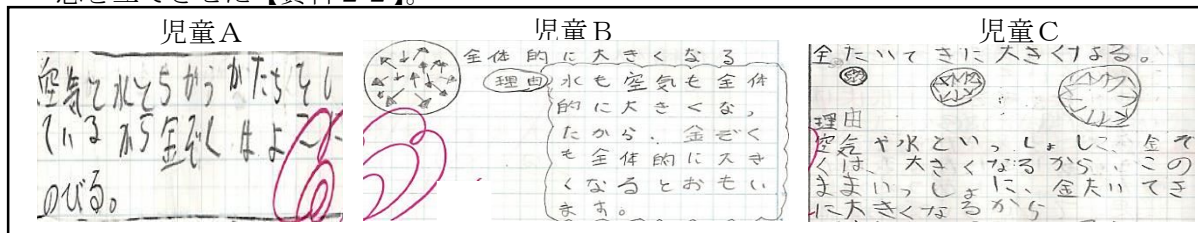 児童A
空気と水とちがうかたちをし
ているから金ぞくはよこに
のびる。
児童B
全体的に大きくなる
理由
水も空気も全体
的に大きくなっ
たから、金ぞく
も全体的に大き
くなるとおもい
ます。
児童C
全たいてきに大きくなる。
理由
空気や水といっしょに、金ぞ
くは、大きくなるから、この
ままいっしょに、金たいてき
に大きくなるから